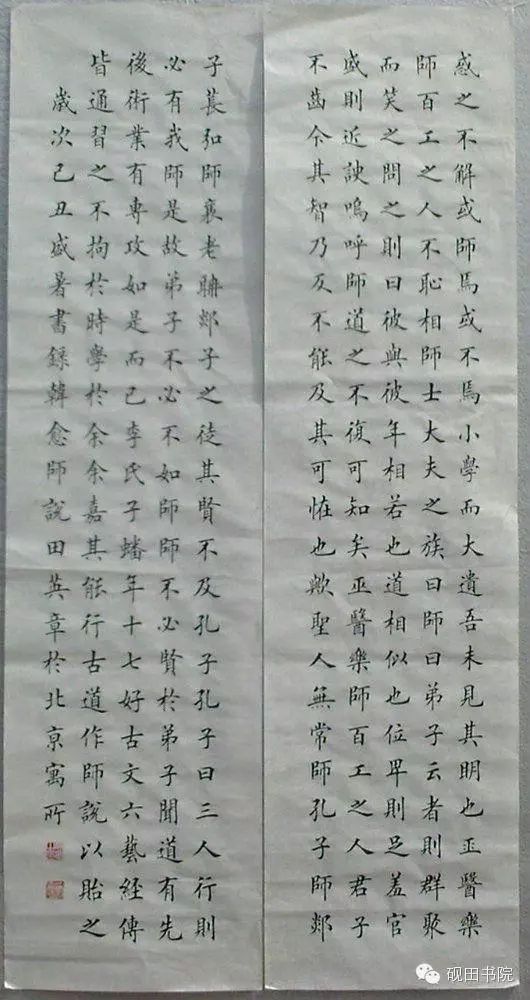 惑之不解或師焉或不焉小學而大遺吾未見其明也巫醫樂
師百工之人不恥相師士大夫之族曰師曰弟子云者則群聚
而笑之問之則曰彼與彼年相若也道相似也位卑則足羞官
盛則近諛嗚呼師道之不復可知矣巫醫樂師百工之人君子
不齒今其智乃反不能及其可恠也歟聖人無常師孔子師郯
子萇弘師襄老聃郯子之徒其賢不及孔子孔子曰三人行則
必有我師是故弟子不必不如師師不必賢於弟子聞道有先
後術業有專攻如是而已李氏子蟠年十七好古文六藝經傳
皆通習之不拘於時學於余余嘉其能行古道作師說以貽之
歲次己丑盛暑書錄韓愈師說田英章於北京寓所
砚田书院